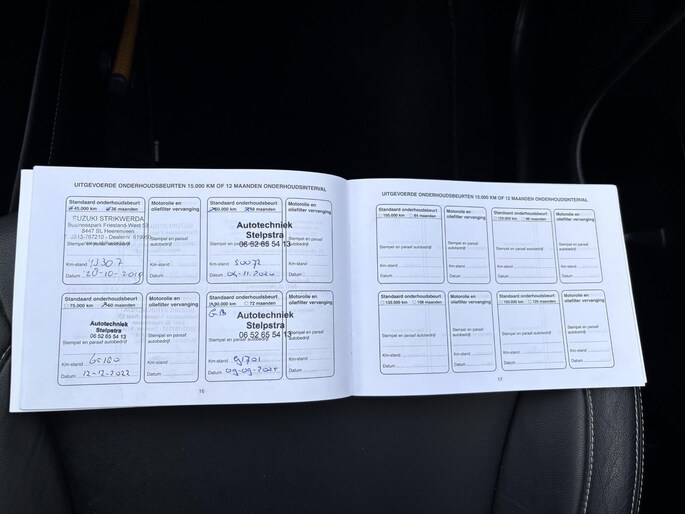 UITGEVOERDE ONDERHOUDSBEURTEN 15.000 KM OF 12 MAANDEN ONDERHOUDSINTERVAL
Standaard onderhoudsbeurt
45.000 km 36 maanden
SUZUKI STRIKWERDA
Businesspark Friesland-West 53
8447 SL Heerenveen
Stempel en paraaf autobedrijf
Km-stand
Datum 28-10-2019
Motorolie en
oliefilter vervanging
Stempel en paraaf
autobedrijf
Km-stand
Datum
Standaard onderhoudsbeurt
60.000 km
maanden
Autotechniek
Stelpstra
06 52 65 54 13
Stempel en paraaf autobedrijf
Km-stand 50072
Datum
Motorolie en
oliefilter vervanging
Stempel en paraaf
autobedrijf
Km-stand
Datum
Standaard onderhoudsbeurt
75.000 km 60 maanden
Autotechniek
Stelpstra
06 52 65 54 13
Stempel en paraaf autobedrijf
Km-stand
Datum 12-12-2022
Motorolie en
oliefilter vervanging
Stempel en paraaf
autobedrijf
Km-stand
Datum
Standaard onderhoudsbeurt
90.000 km 72 maanden
Autotechniek
Stelpstra
06 52 65 54 13
Stempel en paraaf autobedrijf
Km-stand
Datum 09-09-2024
Motorolie en
oliefilter vervanging
Stempel en paraaf
autobedrijf
Km-stand
Datum
16
UITGEVOERDE ONDERHOUDSBEURTEN 15.000 KM OF 12 MAANDEN ONDERHOUDSINTERVAL
Standaard onderhoudsbeurt
84 maanden
Stempel en paraaf autobedrijf
Km-stand
Datum
Motorolie en
oliefilter vervanging
Stempel en paraaf
autobedrijf
Km-stand
Datum
Standaard onderhoudsbeurt
96 maanden
Stempel en paraaf autobedrijf
Km-stand
Datum
Motorolie en
oliefilter vervanging
Stempel en paraaf
autobedrijf
Km-stand
Datum
Standaard onderhoudsbeurt
135.000 km 108 maanden
Stempel en paraaf autobedrijf
Km-stand
Datum
Motorolie en
oliefilter vervanging
Stempel en paraaf
autobedrijf
Km-stand
Datum
Standaard onderhoudsbeurt
150.000 km 120 maanden
Stempel en paraaf autobedrijf
Km-stand
Datum
Motorolie en
oliefilter vervanging
Stempel en paraaf
autobedrijf
Km-stand
Datum
17